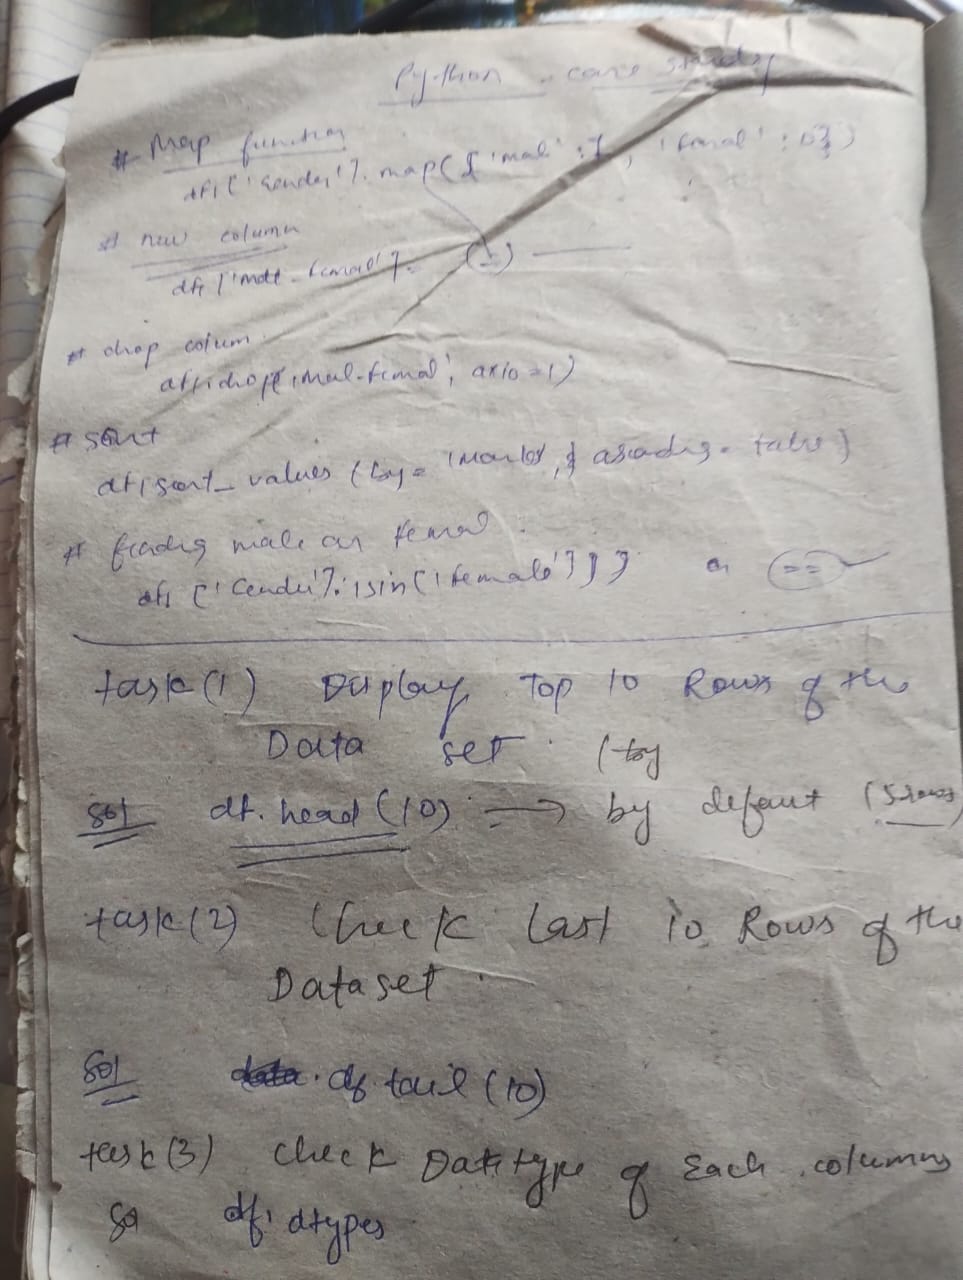 Python - case study
# Map function
df1['Gender'].map({'mal':1, 'femal':0})
# new column
df1['male-femal'] = (-)
# drop colum
df1.drop('mal-femal', axis=1)
# sort
df1.sort_values (by= 'Marks',
# male or femal
df1['Gender'].isin(['female']) or ==
task(1) Display Top 10 Rows of the
Data set. (by
Sol df.head(10) → by defaut (5 rows
task(2) Check Last 10 Rows of the
Dataset.
Sol df.tail(10)
task(3) Check Datatype of Each columns
Sol df.dtypes